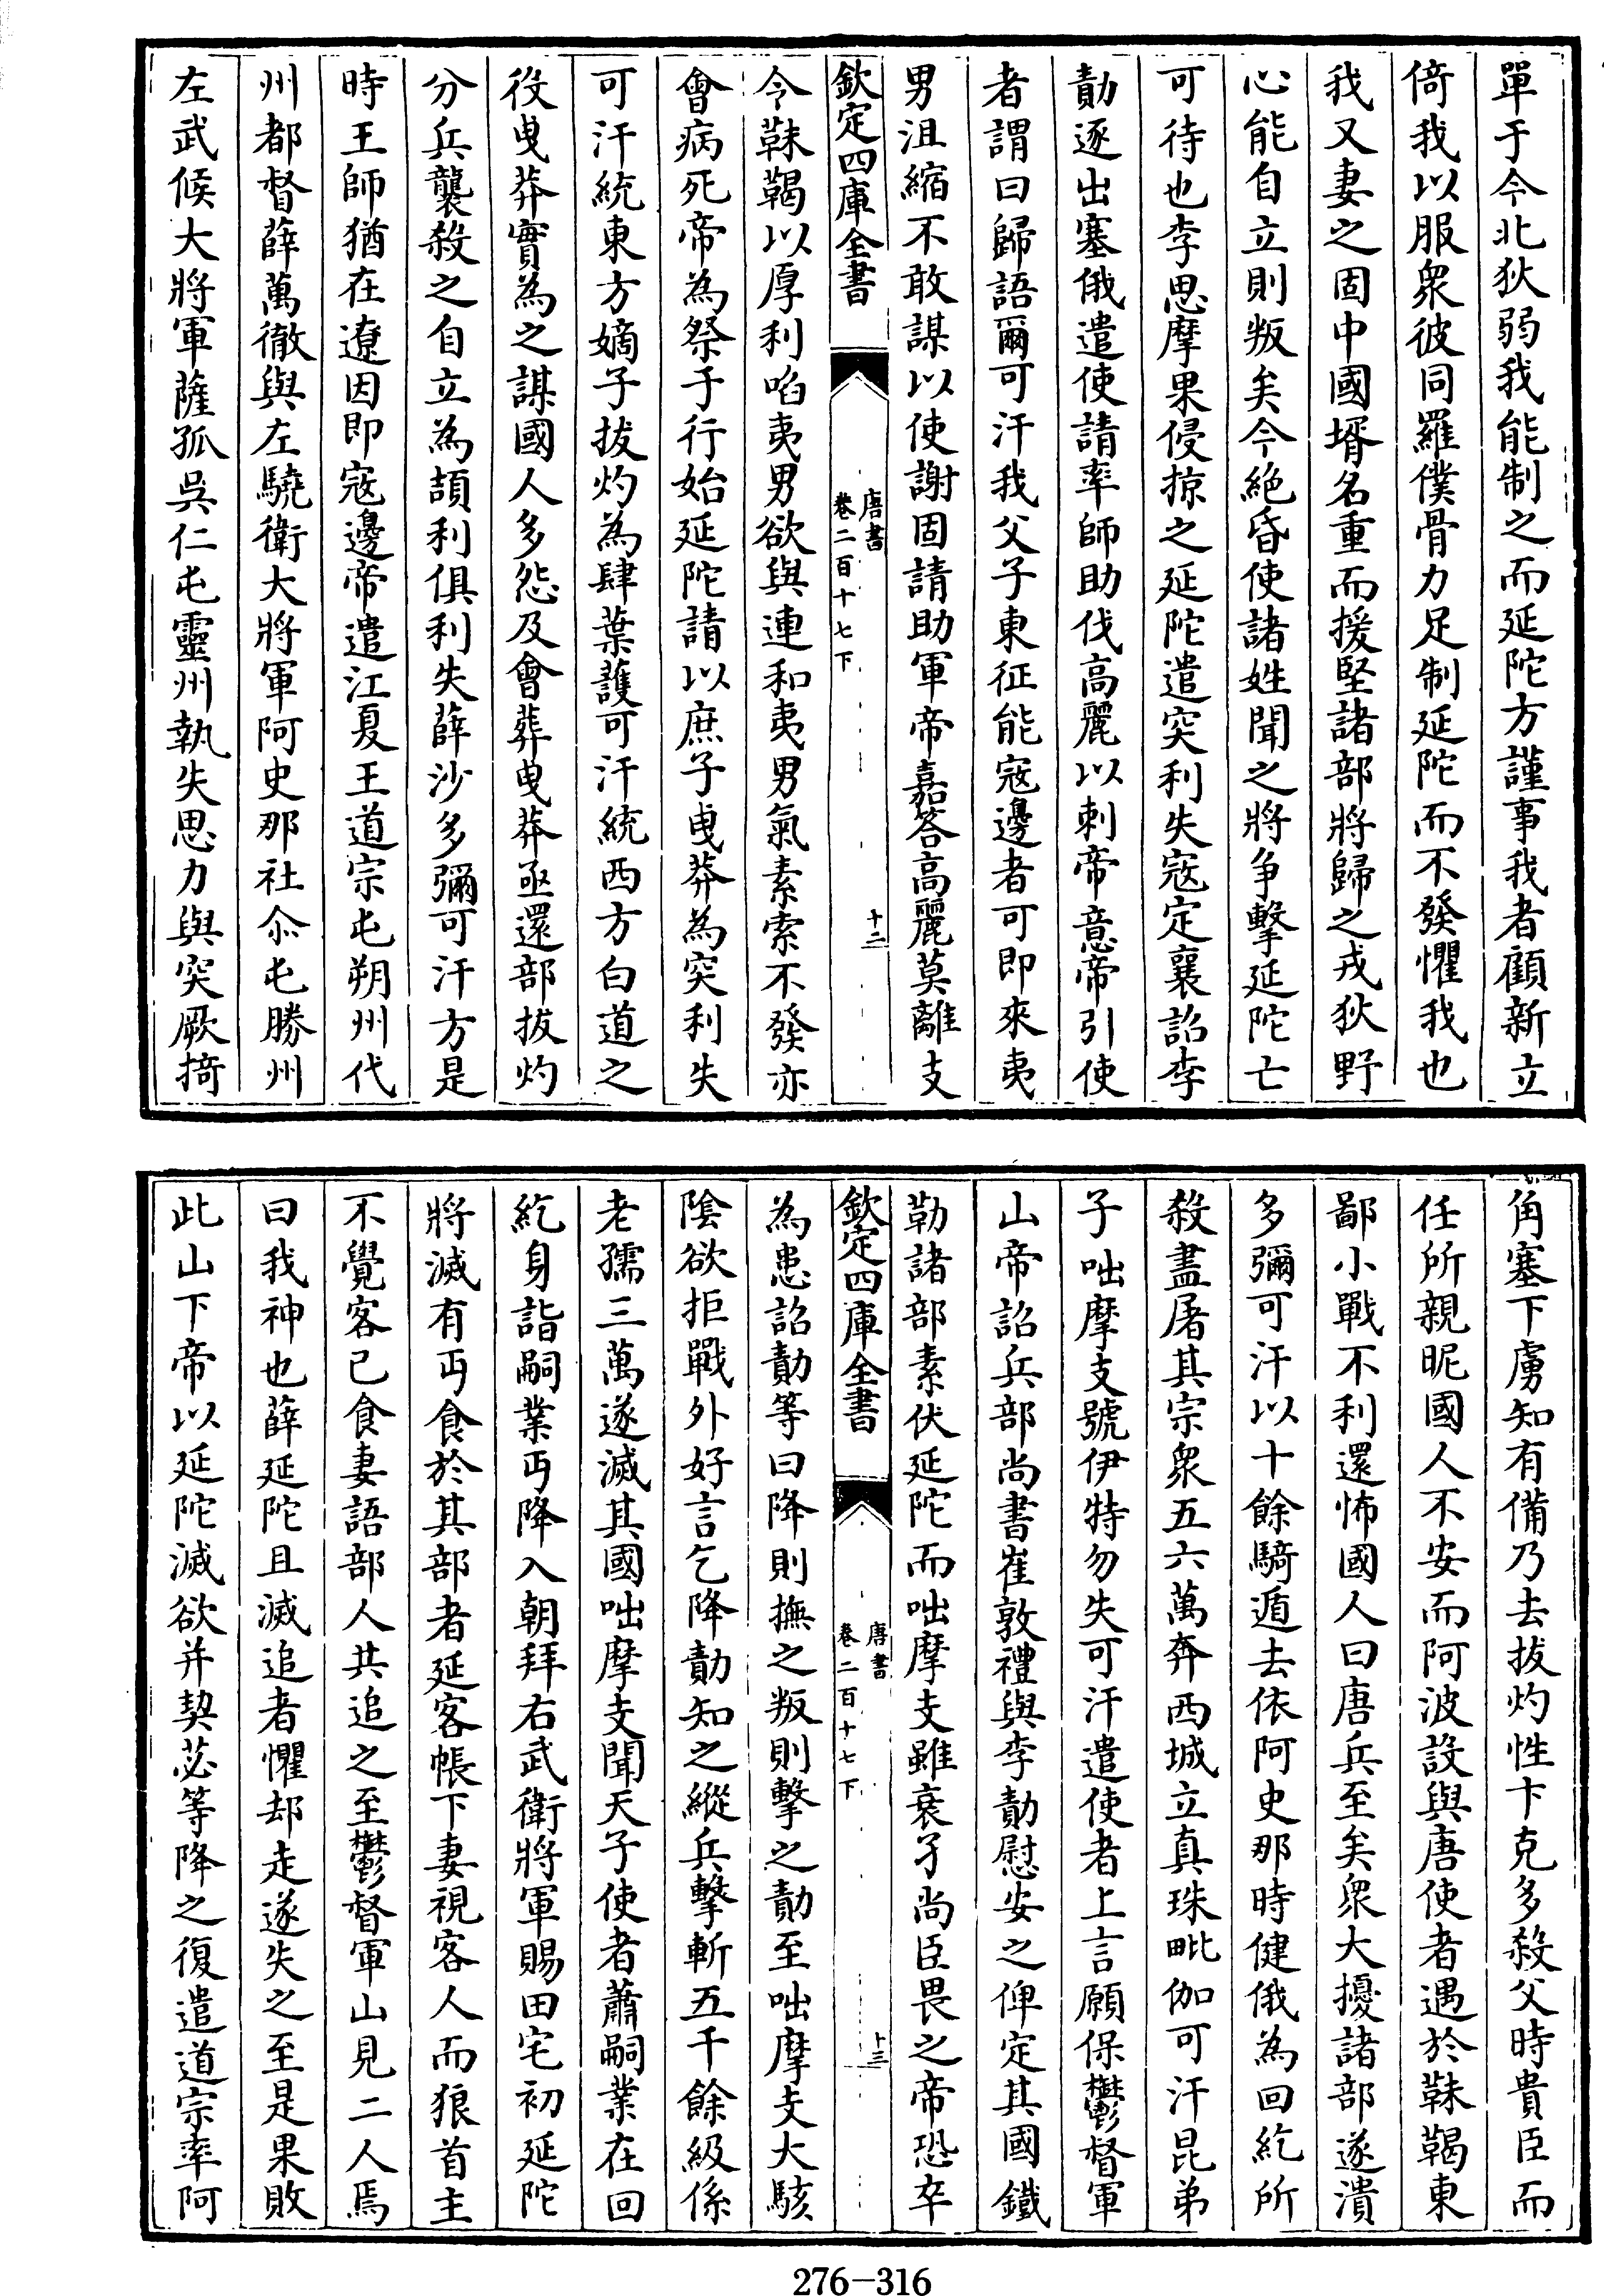 單于今北狄弱我能制之而延陀方謹事我者顧新立
倚我以服衆彼同羅僕骨力足制延陀而不發懼我也
我又妻之固中國壻名重而援堅諸部將歸之戎狄野
心能自立則叛矣今絶昏使諸姓聞之將争擊延陀亡
可待也李思摩果侵掠之延陀遣突利失寇定襄詔李
勣逐出塞俄遣使請率師助伐高麗以刺帝意帝引使
者謂曰歸語爾可汗我父子東征能寇邊者可即來夷
男沮縮不敢謀以使謝固請助軍帝嘉答高麗莫離支
欽定四庫全書
唐書
卷二百十七下
十二
令靺鞨以厚利啗夷男欲與連和夷男氣素索不發亦
會病死帝為祭于行始延陀請以庶子曵莽為突利失
可汗統東方嫡子拔灼為肆葉護可汗統西方白道之
役曵莽實為之謀國人多怨及會葬曵莽亟還部拔灼
分兵襲殺之自立為頡利俱利失薛沙多彌可汗方是
時王師猶在遼因即寇邊帝遣江夏王道宗屯朔州代
州都督薛萬徹與左驍衛大將軍阿史那社尒屯勝州
左武候大將軍薩孤吳仁屯靈州執失思力與突厥掎
角塞下虜知有備乃去拔灼性卞克多殺父時貴臣而
任所親昵國人不安而阿波設與唐使者遇於靺鞨東
鄙小戰不利還怖國人曰唐兵至矣衆大擾諸部遂潰
多彌可汗以十餘騎遁去依阿史那時健俄為回紇所
殺盡屠其宗衆五六萬奔西城立真珠毗伽可汗昆弟
子咄摩支號伊特勿失可汗遣使者上言願保鬱督軍
山帝詔兵部尚書崔敦禮與李勣慰安之俾定其國鐵
勒諸部素伏延陀而咄摩支雖衰孑尚臣畏之帝恐卒
欽定四庫全書
唐書
卷二百十七下
十三
為患詔勣等曰降則撫之叛則擊之勣至咄摩支大駭
陰欲拒戰外好言乞降勣知之縱兵擊斬五千餘級係
老孺三萬遂滅其國咄摩支聞天子使者蕭嗣業在回
紇身詣嗣業丐降入朝拜右武衛將軍賜田宅初延陀
將滅有丐食於其部者延客帳下妻視客人而狼首主
不覺客已食妻語部人共追之至鬱督軍山見二人焉
曰我神也薛延陀且滅追者懼却走遂失之至是果敗
此山下帝以延陀滅欲并契苾等降之復遣道宗率阿
276-316